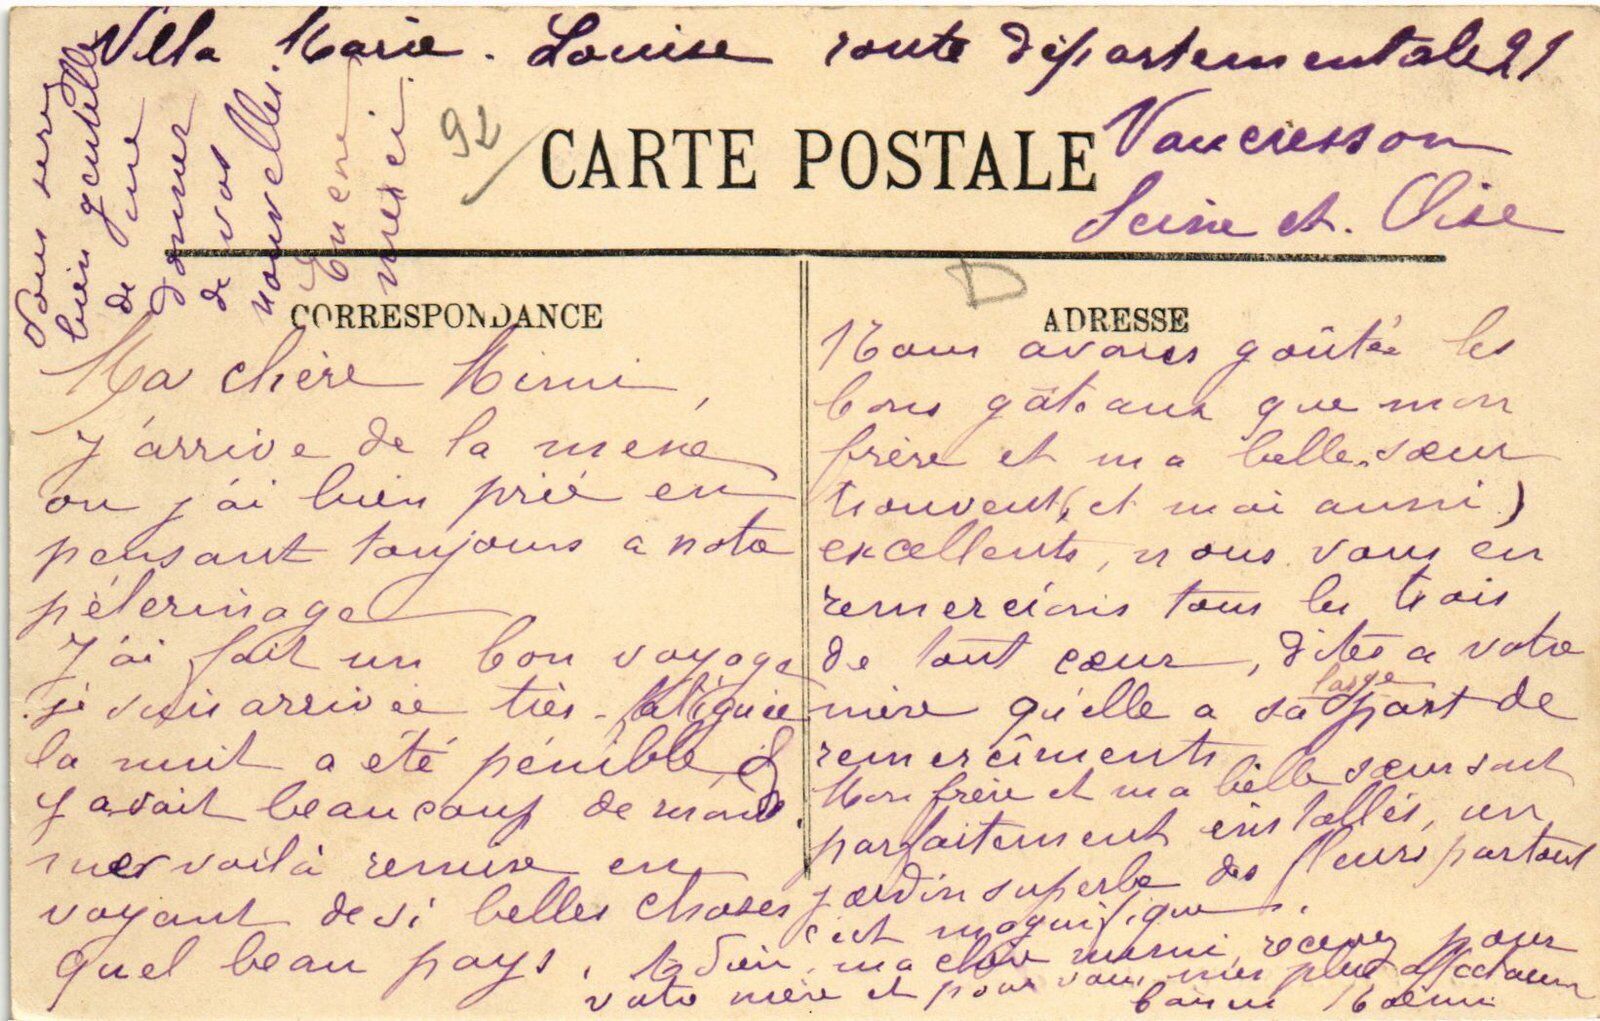 Villa Marie-Louise route départementale 21
Vaucresson
Seine et. Oise
92
CARTE POSTALE
Vous serez
bien gentille
de me
donner
de vos
nouvelles.
Encore
merci.
CORRESPONDANCE
Ma chère Mimi,
J'arrive de la messe
ou j'ai bien prié en
pensant toujours a notre
pélerinage
J'ai fait un bon voyage
je suis arrivée très-fatiguée
la nuit a été pénible, il
y avait beaucoup de monde.
me voilà remise en
voyant de si belles choses
quel beau pays.
D
ADRESSE
Nous avons goûtée les
bons gâteaux que mon
frère et ma belle-sœur
trouvent (et moi aussi)
excellents, nous vous en
remercions tous les trois
de tout cœur, dites a votre
mère qu'elle a sa large part de
remercîments
Mon frère et ma belle sœur sont
parfaitement installés, un
jardin superbe des fleurs partout
c'est magnifique.
Adieu, ma chère mimi, recevez pour
votre mère et pour vous, mes plus affectueux
baisers Noémi